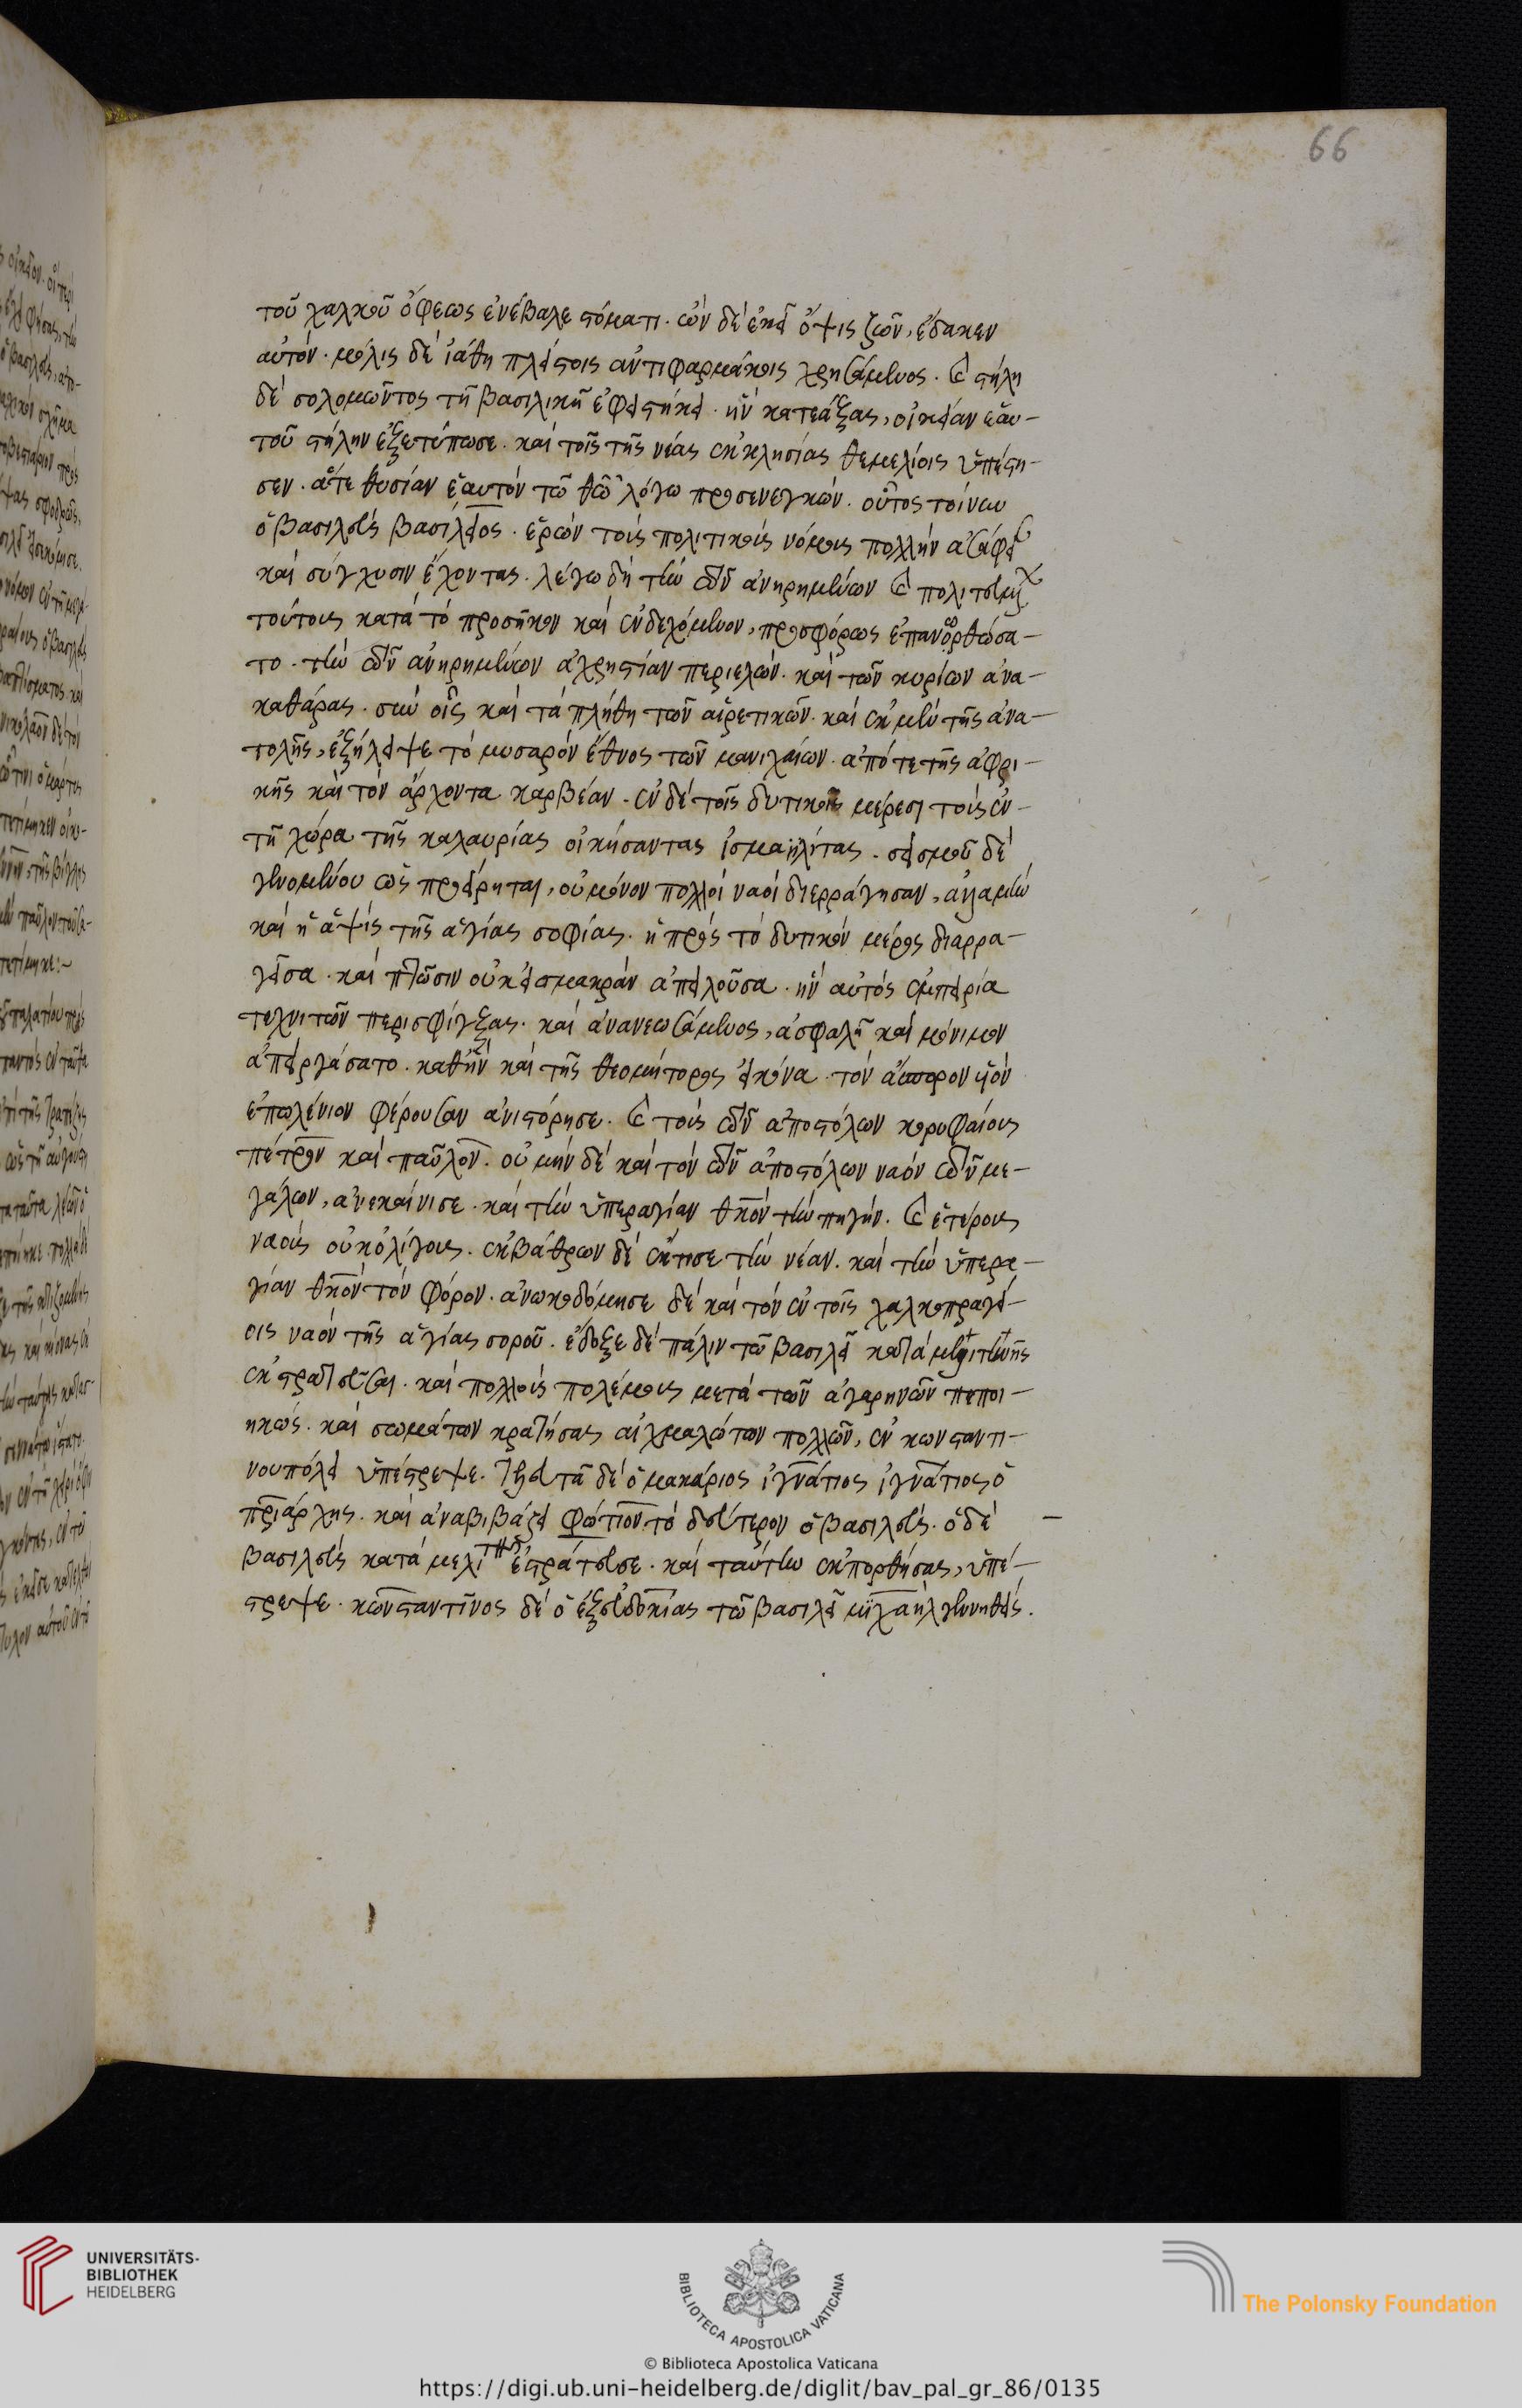 66
τοῦ χαλκοῦ ὄφεως ἐνέβαλε στόματι. ὢν δὲ ἐκεῖ ὄφις ζῶν, ἔδακεν
αὐτόν. μόλις δὲ ἰάθη πλείστοις ἀντιφαρμάκοις χρησάμενος. καὶ στήλη
δὲ σολομῶντος τῇ βασιλικῇ ἐφειστήκει. ἣν κατεάξας, οἰκείαν ἑαυ-
τοῦ στήλην ἐξετύπωσε. καὶ τοῖς τῆς νέας ἐκκλησίας θεμελίοις ὑπέστη-
σεν. ἅτε θυσίαν ἑαυτὸν τῶ θῶ λόγω προσενεγκών. οὗτος τοίνυν
ὁ βασιλεὺς βασίλειος. εὑρὼν τοὺς πολιτικοὺς νόμους πολλὴν ἀσάφει
καὶ σύγχυσιν ἔχοντας. λέγω δὴ τὴν τῶν ἀνηρημένων καὶ πολιτευμ
τούτους κατὰ τὸ προσῆκον καὶ ἐνδεχόμενον, προσφόρως ἐπανορθώσα-
το. τὴν τῶν ἀνηρημένων ἀχρηστίαν περιελών. καὶ τῶν κυρίων ἀνα-
καθάρας. σὺν οἷς καὶ τὰ πλήθη τῶν αἱρετικῶν. καὶ ἐκ μὲν τῆς ἀνα-
τολῆς, ἐξήλειψε τὸ μυσαρὸν ἔθνος τῶν μανιχαίων. ἀπό τε τῆς ἀφρι-
κῆς καὶ τὸν ἄρχοντα καρβέαν. ἐν δὲ τοῖς δυτικοῖς μέρεσι τοὺς ἐν
τῇ χώρα τῆς καλαυρίας οἰκήσαντας ἰσμαηλίτας. σεισμοῦ δὲ
γενομένου ὡς προείρηται, οὐ μόνον πολλοὶ ναοὶ διερράγησαν, ἀλλὰ μὴν
καὶ ἡ ἁψὶς τῆς ἁγίας σοφίας. ἡ πρὸς τὸ δυτικὸν μέρος διαρρα-
γεῖσα. καὶ πτῶσιν οὐκ εἰς μακρὰν ἀπειλοῦσα. ἣν αὐτὸς ἐμπειρία
τεχνιτῶν περισφίγξας. καὶ ἀνανεωσάμενος, ἀσφαλῆ καὶ μόνιμον
ἀπειργάσατο. καθ' ἣν καὶ τῆς θεομήτορος εἰκόνα. τὸν ἄσπορον υἱὸν
ἐπωλένιον φέρουσαν ἀνιστόρησε. καὶ τοὺς τῶν ἀποστόλων κορυφαίους
πέτρον καὶ παῦλον. οὐ μὴν δὲ καὶ τὸν τῶν ἀποστόλων ναὸν τῶν με-
γάλων, ἀνεκαίνισε. καὶ τὴν ὑπεραγίαν θκον τὴν πηγήν. καὶ ἑτέρους
ναοὺς οὐκ ὀλίγους. ἐκ βάθρων δὲ ἔκτισε τὴν νέαν. καὶ τὴν ὑπερα-
γίαν θκον τὸν φόρον. ἀνωκοδόμησε δὲ καὶ τὸν ἐν τοῖς χαλκοπρατεί-
οις ναὸν τῆς ἁγίας σοροῦ. ἔδοξε δὲ πάλιν τῶ βασιλεῖ κατὰ μελιτηνῆς
ἐκστρατεῦσαι. καὶ πολλοὺς πολέμους μετὰ τῶν ἀγαρηνῶν πεποι-
ηκώς. καὶ σωμάτων κρατήσας αἰχμαλώτων πολλῶν, ἐν κωνσταντι-
νουπόλει ὑπέστρεψε. τελευτᾶ δὲ ὁ μακάριος ἰγνάτιος ἰγνάτιος ὁ
πριάρχης. καὶ ἀναβιβάζει φώτιον τὸ δεύτερον ὁ βασιλεύς. ὁ δὲ
βασιλεὺς κατὰ μελιτηνῆς ἐστράτευσε. καὶ ταύτην ἐκπορθήσας, ὑπέ-
στρεψε. κωνσταντῖνος δὲ ὁ ἐξ εὐδοκίας τῶ βασιλεῖ μιχαὴλ γεννηθείς.
UNIVERSITÄTS-
BIBLIOTHEK
HEIDELBERG
BIBLIOTECA APOSTOLICA VATICANA
The Polonsky Foundation
© Biblioteca Apostolica Vaticana
https://digi.ub.uni-heidelberg.de/diglit/bav_pal_gr_86/0135